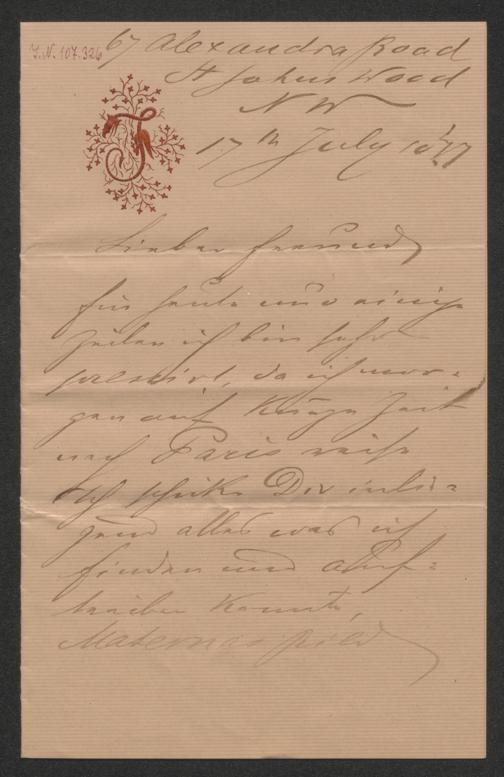 I.N. 107.326
67 Alexandra Road
St Johns Wood
NW
17th July 1877
Lieber Freund
für heute nur einige
Zeilen ich bin sehr
pressirt, da ich mor-
gen auf kurze Zeit
nach Paris reise
Ich schicke Dir inli-
gend alles was ich
finden und auf-
treiben konnte,
Maternas Bild